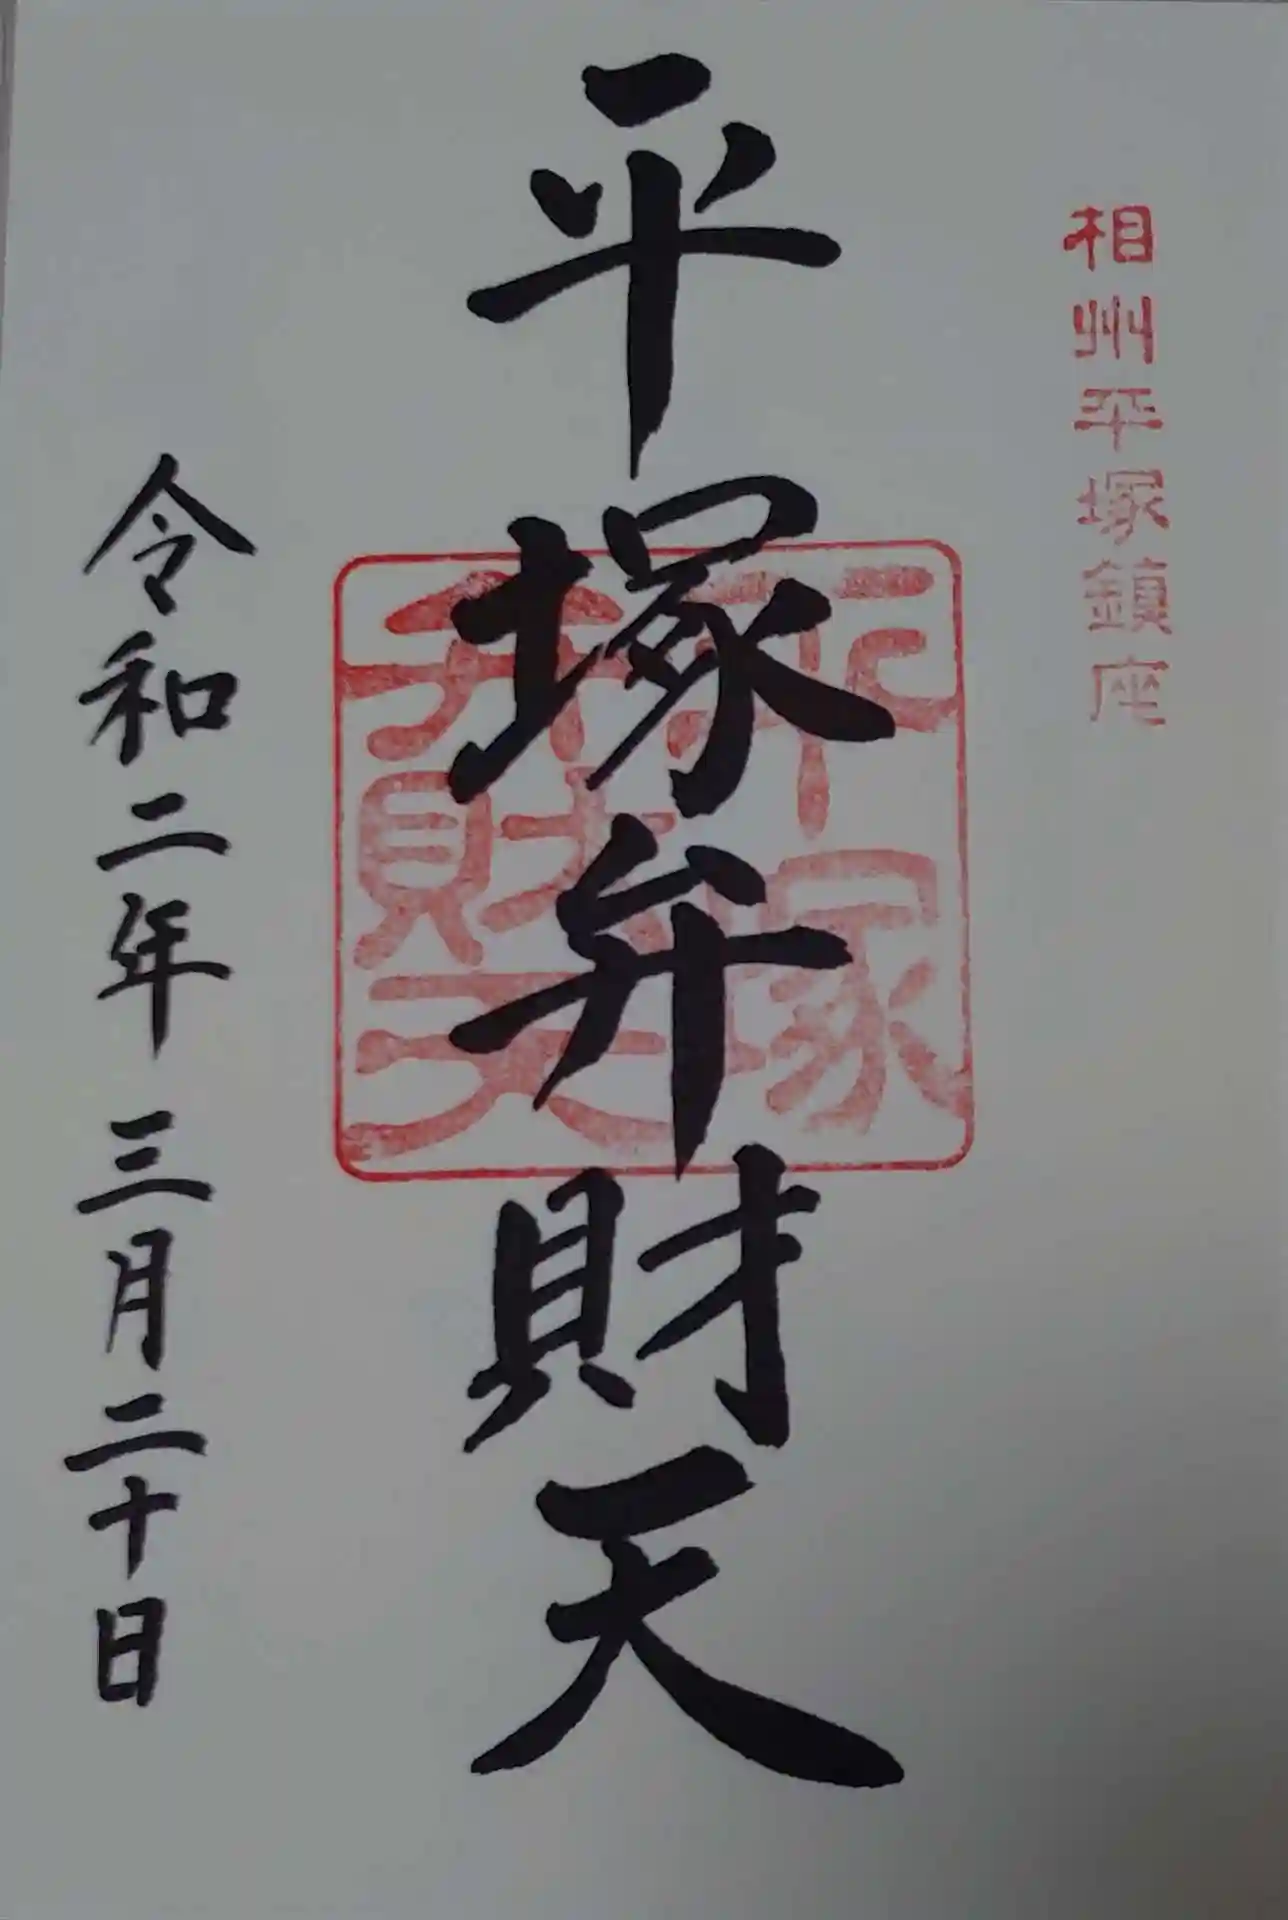 相州平塚鎮座
平塚弁財天
平塚
弁財天
令和二年三月二十日